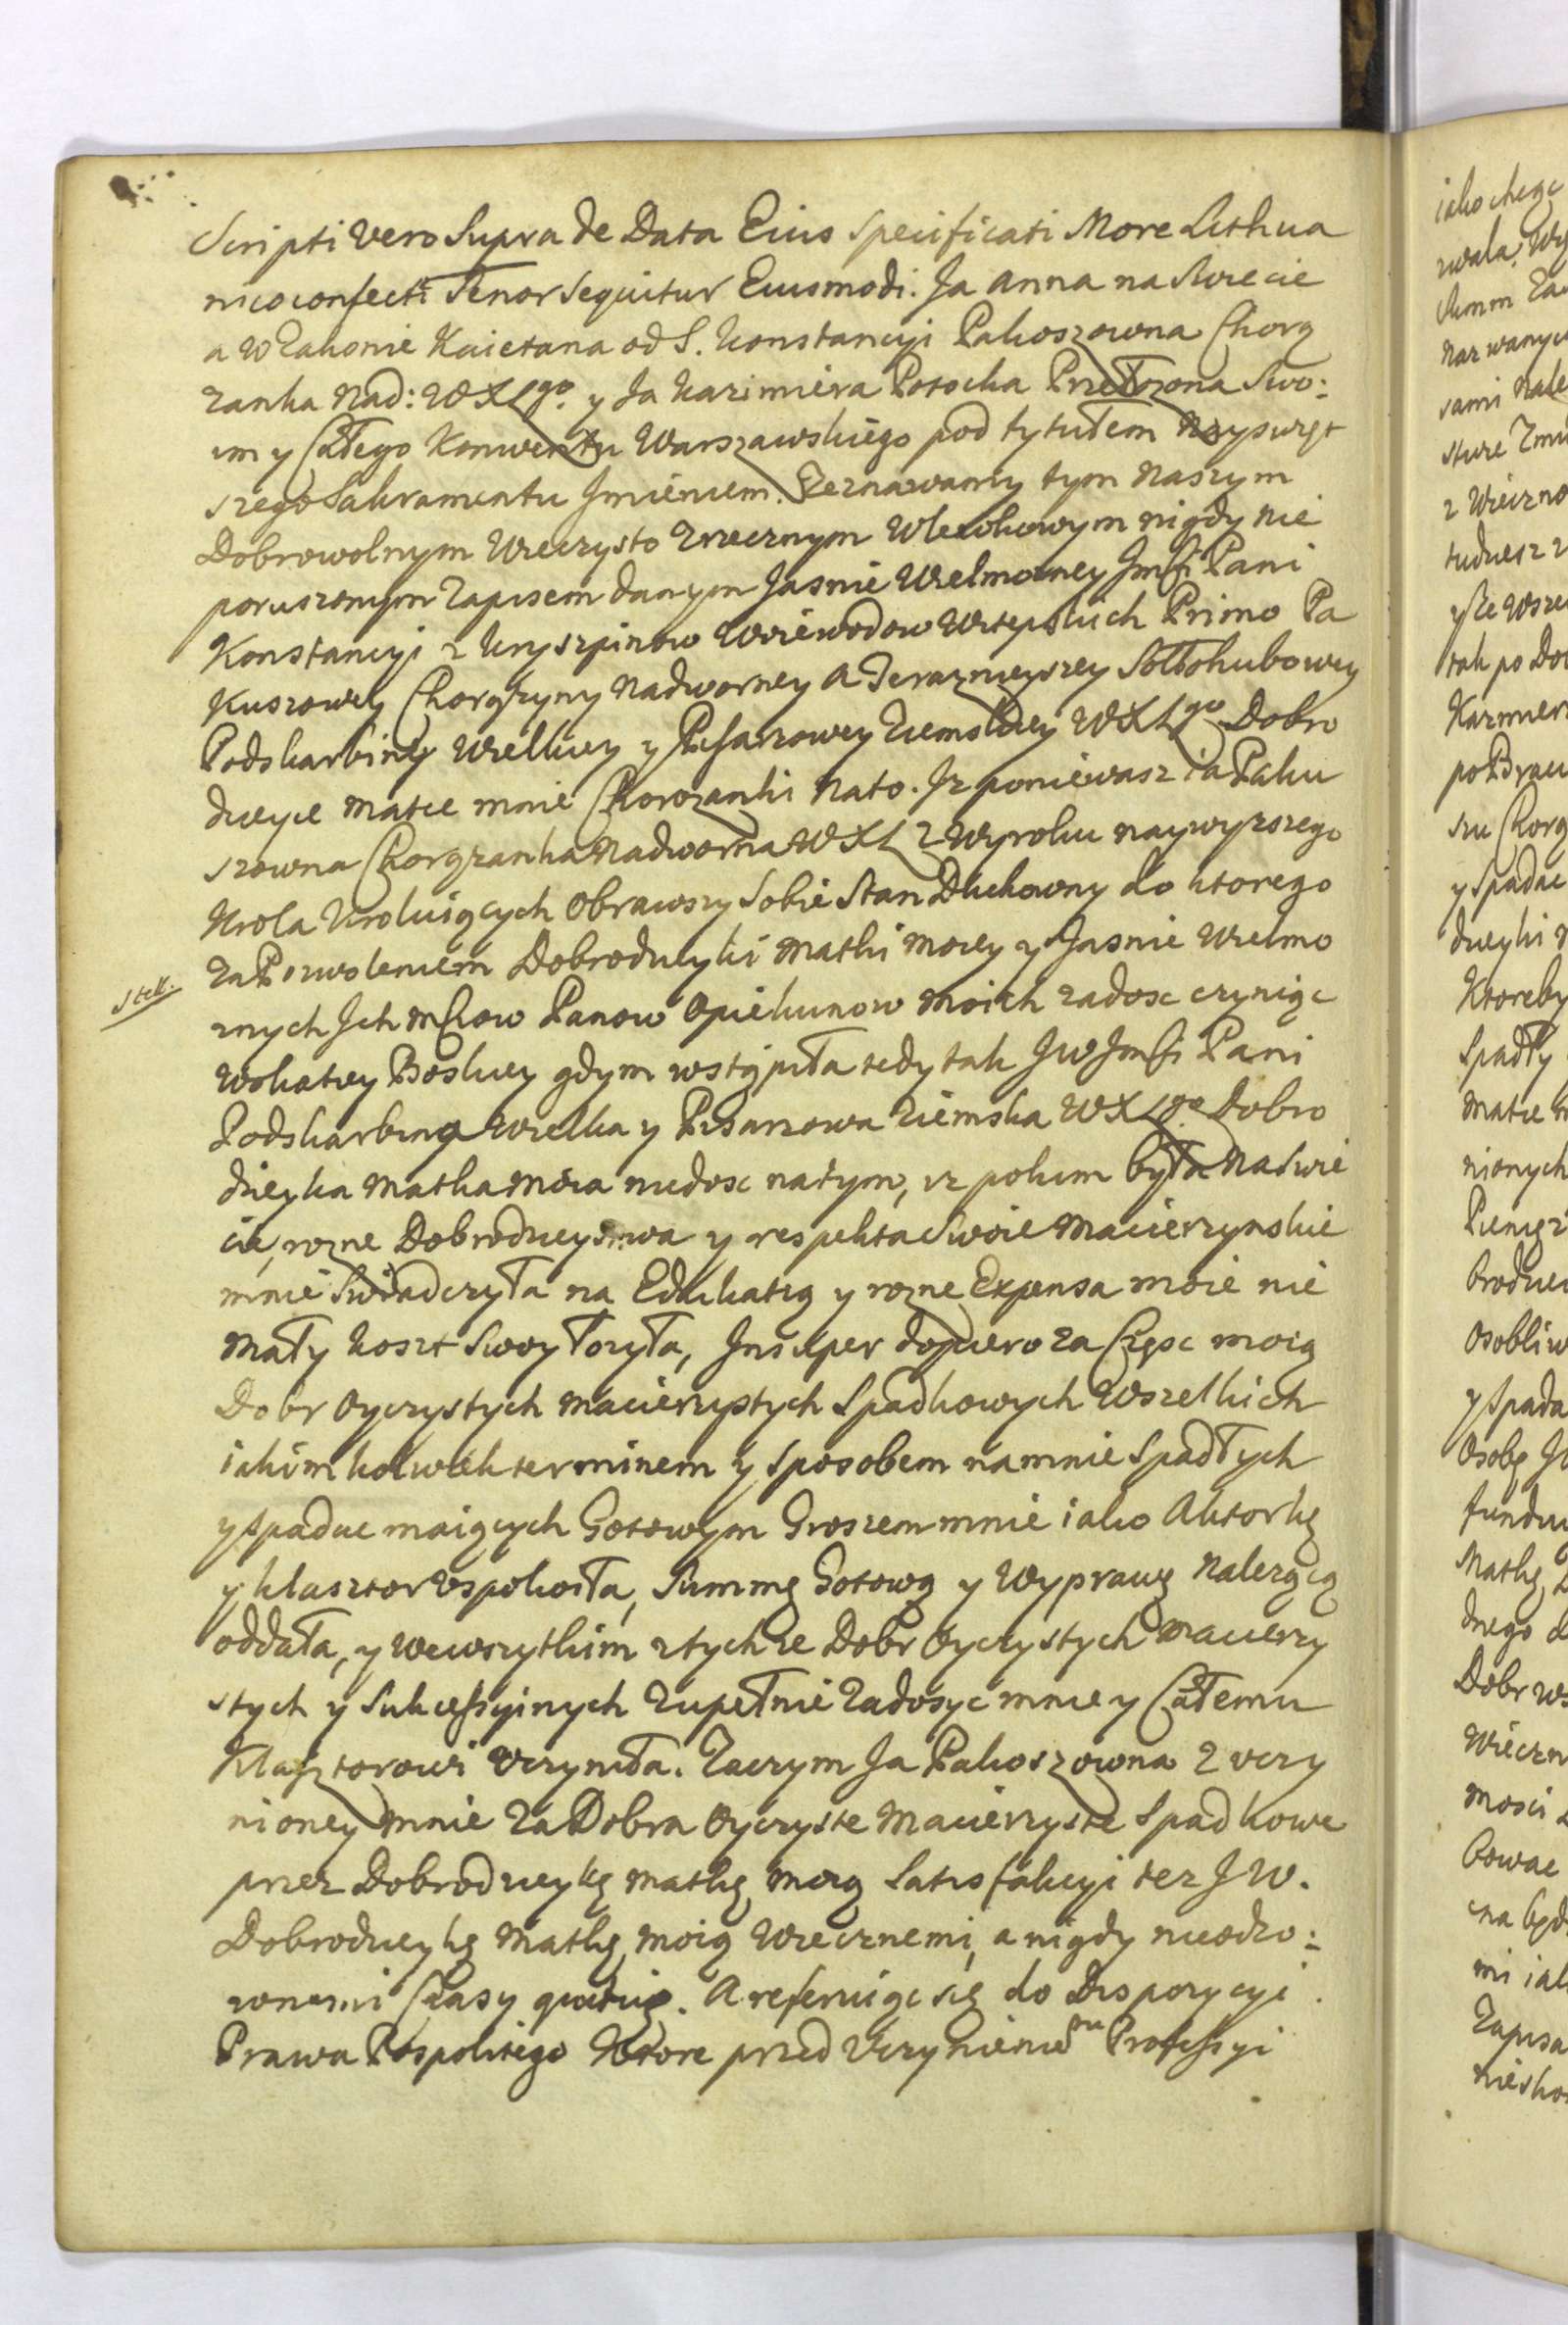 Scripti vero Supra de Data Eius Specificati More Lithua
nico confecti Tenor Sequitur Eiusmodi. Ja Anna na Swiecie
a w Zakonie Kaietana od S. Konstancyi Pakoszowna Chorą
zanka Nad: WXLgo. y Ja Kazimiera Potocka Przełozona Swo:
im y Całego Konwentu Warszawskiego pod tytułem Nayswięt
szego Sakramentu Jmieniem. Zeznawamy tym Naszym
Dobrowolnym Wieczysto Zrzecznym Wlewkowym nigdy nie
poruszonym Zapisem danym Jasnie Wielmozney Jmsći Pani
Konstancyi z Kryszpinow Woiewodow Witepskich Primo Pa
kuszowey Chorąźyny Nadworney A Teraznieyszey Sołłohubowey
Podskarbiny Wielkiey y Pisarzowey Ziemskiey WXLgo Dobro
dzieyce Matce mnie Chorozanki Nato. Jz poniewasz ia Paku
szowna Chorązanka Nadworna WXL z Wyroku naywyzszego
Krola Kroluiących Obrawszy Sobie Stan Duchowny do ktorego
Za Pozwoleniem Dobrodzieyki Matki moiey y Jasnie Wielmo
stell.
znych Jch mscow Panow Opiekunow Moich zadosc czyniąc
Wokatiey Boskiey gdym wstąpiła tedy tak JW Jmsći Pani
Podskarbina Wielka y Pisarzowa Ziemska WXLgo. Dobro
dzieyka Matka Moia niedosc natym, iz pokim była Na Swie
cie, rozne Dobrodzieystwa y respekta Swoie Macierzynskie
mnie Swiadczyła na Edukatią y rozne Expensa moie nie
Mały koszt Swoy łozyła, Insuper dopiero za Częsc moią
Dobr Oyczystych Macierzystych Spadkowych Wszelkich
iakimkolwiek terminem y Sposobem namnie Spadłych
y Spadac maiących Gotowym Groszem mnie iako Aktorkę
y klasztor Uspokoiła, Summę Gotową y Wyprawę Nalezącą
oddała, y wewszytkim ztychze Dobr Oyczystych Macierzy
stych y Sukcessyinych Zupełnie Zadosyc mnie y Całemu
Klasztorowi Uczyniła. Zaczym Ja Pakoszowna z uczy
nioney mnie Za Dobra Oyczyste Macierzyste Spadkowe
przez Dobrodzieykę Matkę Moią Satisfakcyi tez JW.
Dobrodzieykę Matkę Moią Wiecznemi, a nigdy nieodzo:
wnemi Czasy quituię. A referuiąc się do Dispozycyi
Prawa Pospolitego Ktore przed Uczynieniem Professyi